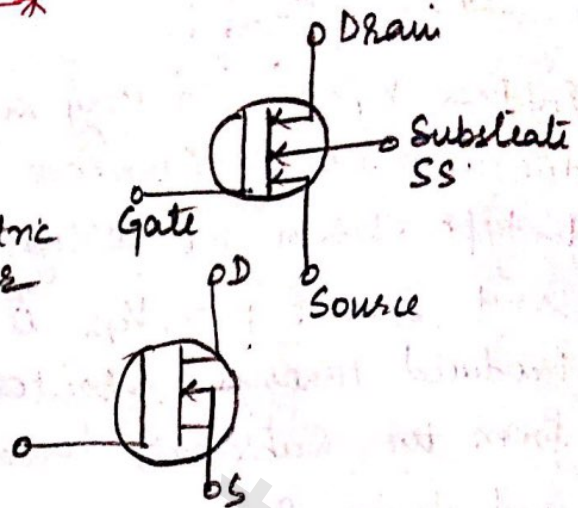 Drain
Substrate
SS
Gate
tric
D
Source
S